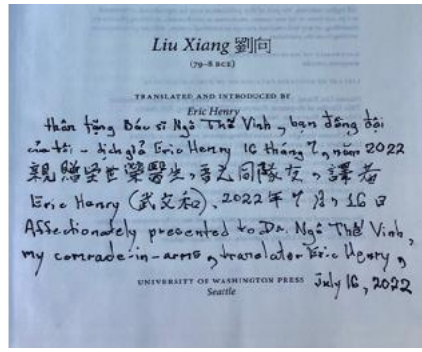 Liu Xiang 劉向
(79–8 BCE)
TRANSLATED AND INTRODUCED BY
Eric Henry
thân tặng Bác sĩ Ngô Thế Vinh, bạn đồng đội
của tôi – dịch giả Eric Henry 16 tháng 7, năm 2022
親贈 世榮醫生, 同隊友, 譯者
Eric Henry (武文和), 2022年7月, 16日
Affectionately presented to Dr. Ngô Thế Vinh,
my comrade-in-arms, translator Eric Henry,
July 16, 2022
UNIVERSITY OF WASHINGTON PRESS
Seattle